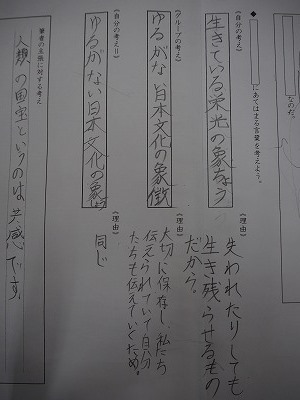 なのだ。
◆
にあてはまる言葉を考えよう。
(自分の考え)
生きている栄光の象ちょう
(理由)
失われたりしても
生き残らせるもの
だから。
(グループの考え)
ゆるがな 日本文化の象徴
(理由)
大切に保存し、私たち
伝えられていて自分
たちも伝えていくため。
(自分の考えⅡ)
ゆるがない日本文化の象
(理由)
同じ
筆者の主張に対する考え
人類の国宝というのは共感です。